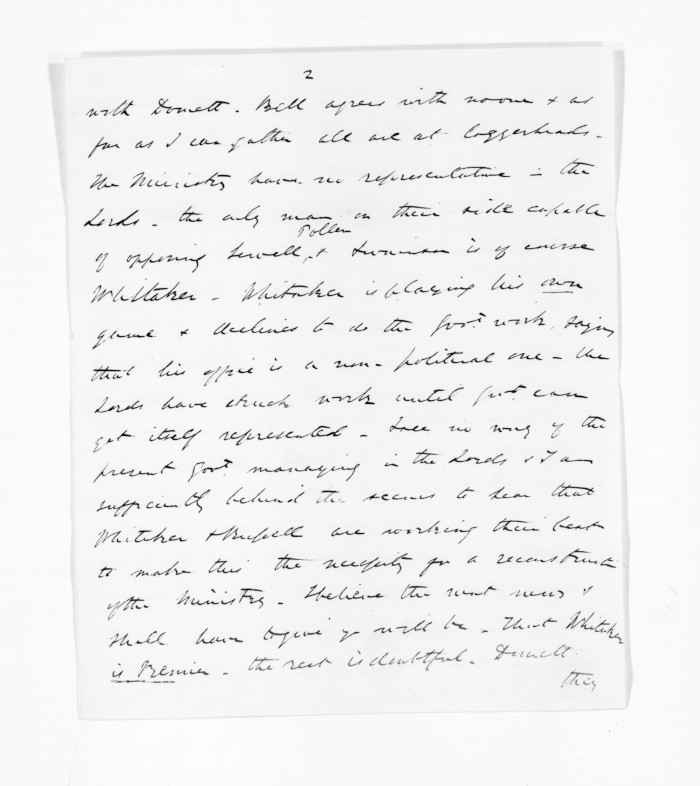 2
with Domett - Bell agrees with no one & as
far as I can gather all are at loggerheads -
The Ministry have no representative in the
Lords - the only man on their side capable
Pollen
of opposing Sewell, & Swainson is of course
Whittaker - Whitaker is playing his own
game & declines to do the Govt. work, saying
that his office is a non-political one - the
Lords have struck work until Govt. can
get itself represented - I see no way of the
present Govt. managing in the Lords & I am
sufficiently behind the scenes to hear that
Whitaker & Russell are working their best
to make this the necessity for a reconstruct
of the Ministry - I believe the next news I
shall have to give yo will be - that Whitaker
is Premier - the rest is doubtful - Domett
they